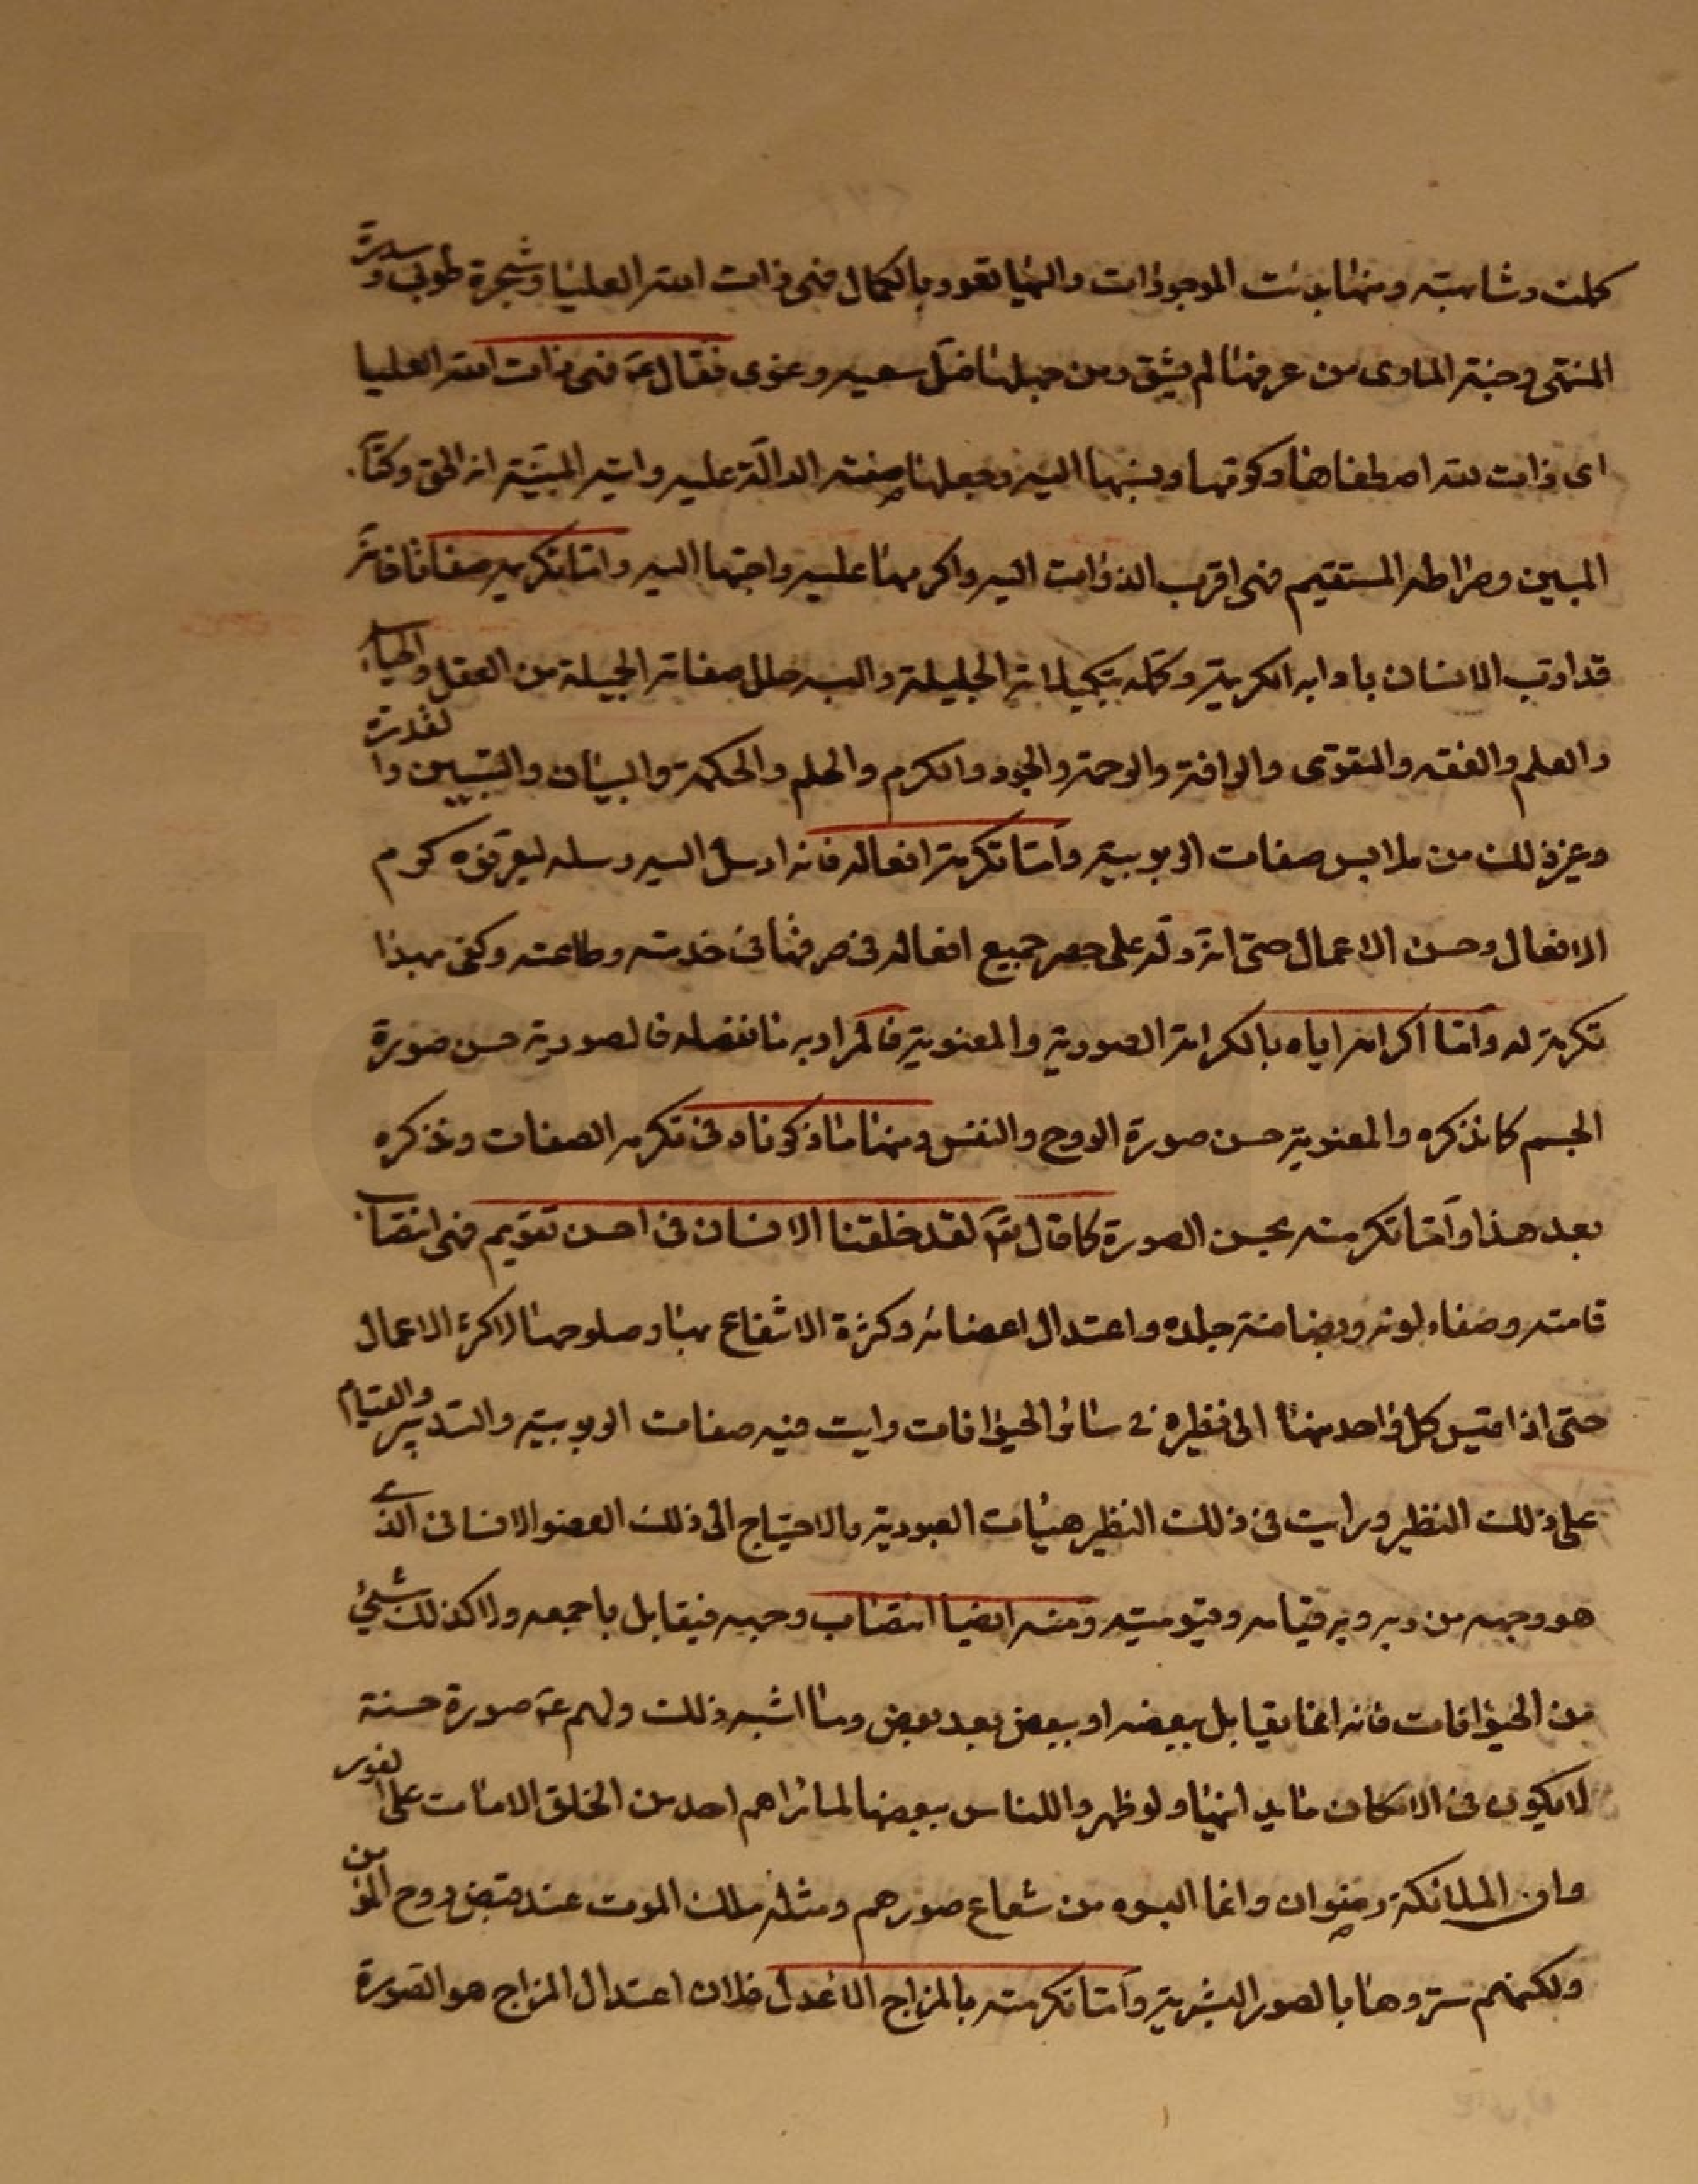 كملت وشابهته ومنها بدئت الموجودات واليها تعود بالكمال فهى ذات الله العليا وشجرة طوبى وسدرة
المنتهى وجنة الماوى من عرفها لم يشق ومن جهلها ضل سعيه وغوى فقال ع‍ فهى ذات الله العليا
اى ذات لله اصطفاها وكونها ونسبها اليه وجعلها صفته الدالة عليه وايته المبينة انه الحق وكتابه
المبين وصراطه المستقيم فهى اقرب الذوات اليه واكرمها عليه واحبها اليه واما تكريم صفاته فانه
قد ادب الانسان بادابه الكريمة وكمله بتكميلاته الجليلة والبسه حلل صفاته الجميلة من العقل والحياء
والعلم والفقه والتقوى والرافة والرحمة والجود والكرم والحلم والحكمة والبيان والتبيين والقدرة
وغير ذلك من ملابس صفات الربوبية واما تكرمة افعاله فانه ارسل اليه رسله ليعرفوه كرم
الافعال وحسن الاعمال حتى انه دله على حصر جميع افعاله فى صرفها فى خدمته وطاعته وكفى بهذا
تكرمة له واما اكرامه اياه بالكرامة الصورية والمعنوية فالمراد به ما نفصله فالصورية حسن صورة
الجسم كما نذكره والمعنوية حسن صورة الروح والنفس ومنها ما ذكرناه فى تكرمه الصفات ونذكره
بعد هذا واما تكرمته بحسن الصورة كما قال تع‍ لقد خلقنا الانسان فى احسن تقويم فهى انتصاب
قامته وصفاء لونه وبضاضة جلده واعتدال اعضائه وكثرة الانتفاع بها وصلوحها لاكثر الاعمال
حتى اذا قيس كل واحد منها الى نظيره فى سائر الحيوانات رايت فيه صفات الربوبية والتدبير والقيام
على ذلك النظير ورايت فى ذلك النظير هيئات العبودية والاحتياج الى ذلك العضو الانسانى الذى
هو وجهه من ربه وبه قيامه وقيوميته ومنه ايضا انتصاب وجهه فيقابل باجمعه ولا كذلك شئ
من الحيوانات فانه انما يقابل ببعضه او ببعض بعد بعض وما اشبه ذلك ولهم ع‍ صورة حسنة
لا يكون فى الامكان ما يدانيها ولو ظهروا للناس ببعضها لما يراهم احد من الخلق الا مات على الفور
وان الملائكة ورضوان وانما البسوه من شعاع صورهم ومثله ملك الموت عند قبض روح المؤمن
ولكنهم ستروها بالصور البشرية واما تكرمته بالمزاج الاعدل فلان اعتدال المزاج هو الصورة